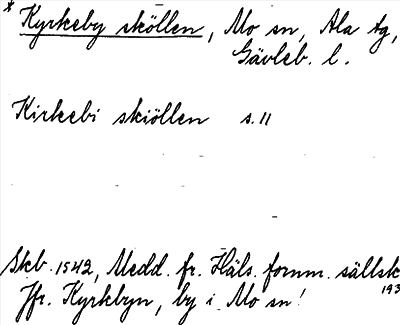 * Kyrkeby sköllen, Mo sn, Ala tg,
Gävleb. l.
Kirkebi skiöllen s. 11
Skb. 1542, Medd. fr. Häls. fornm. sällsk
193
Jfr. Kyrkbyn, by i Mo sn!